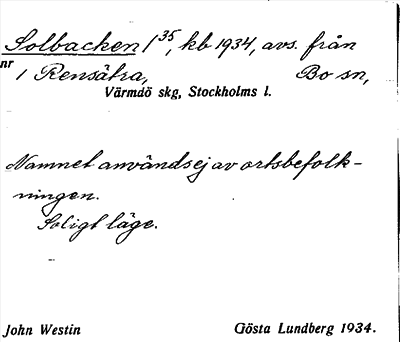 Solbacken 1³⁵, kb 1934, avs. från
nr 1 Rensättra, Bo sn,
Värmdö skg, Stockholms l.
Namnet användes ej av ortsbefolk-
ningen.
Soligt läge.
John Westin Gösta Lundberg 1934.